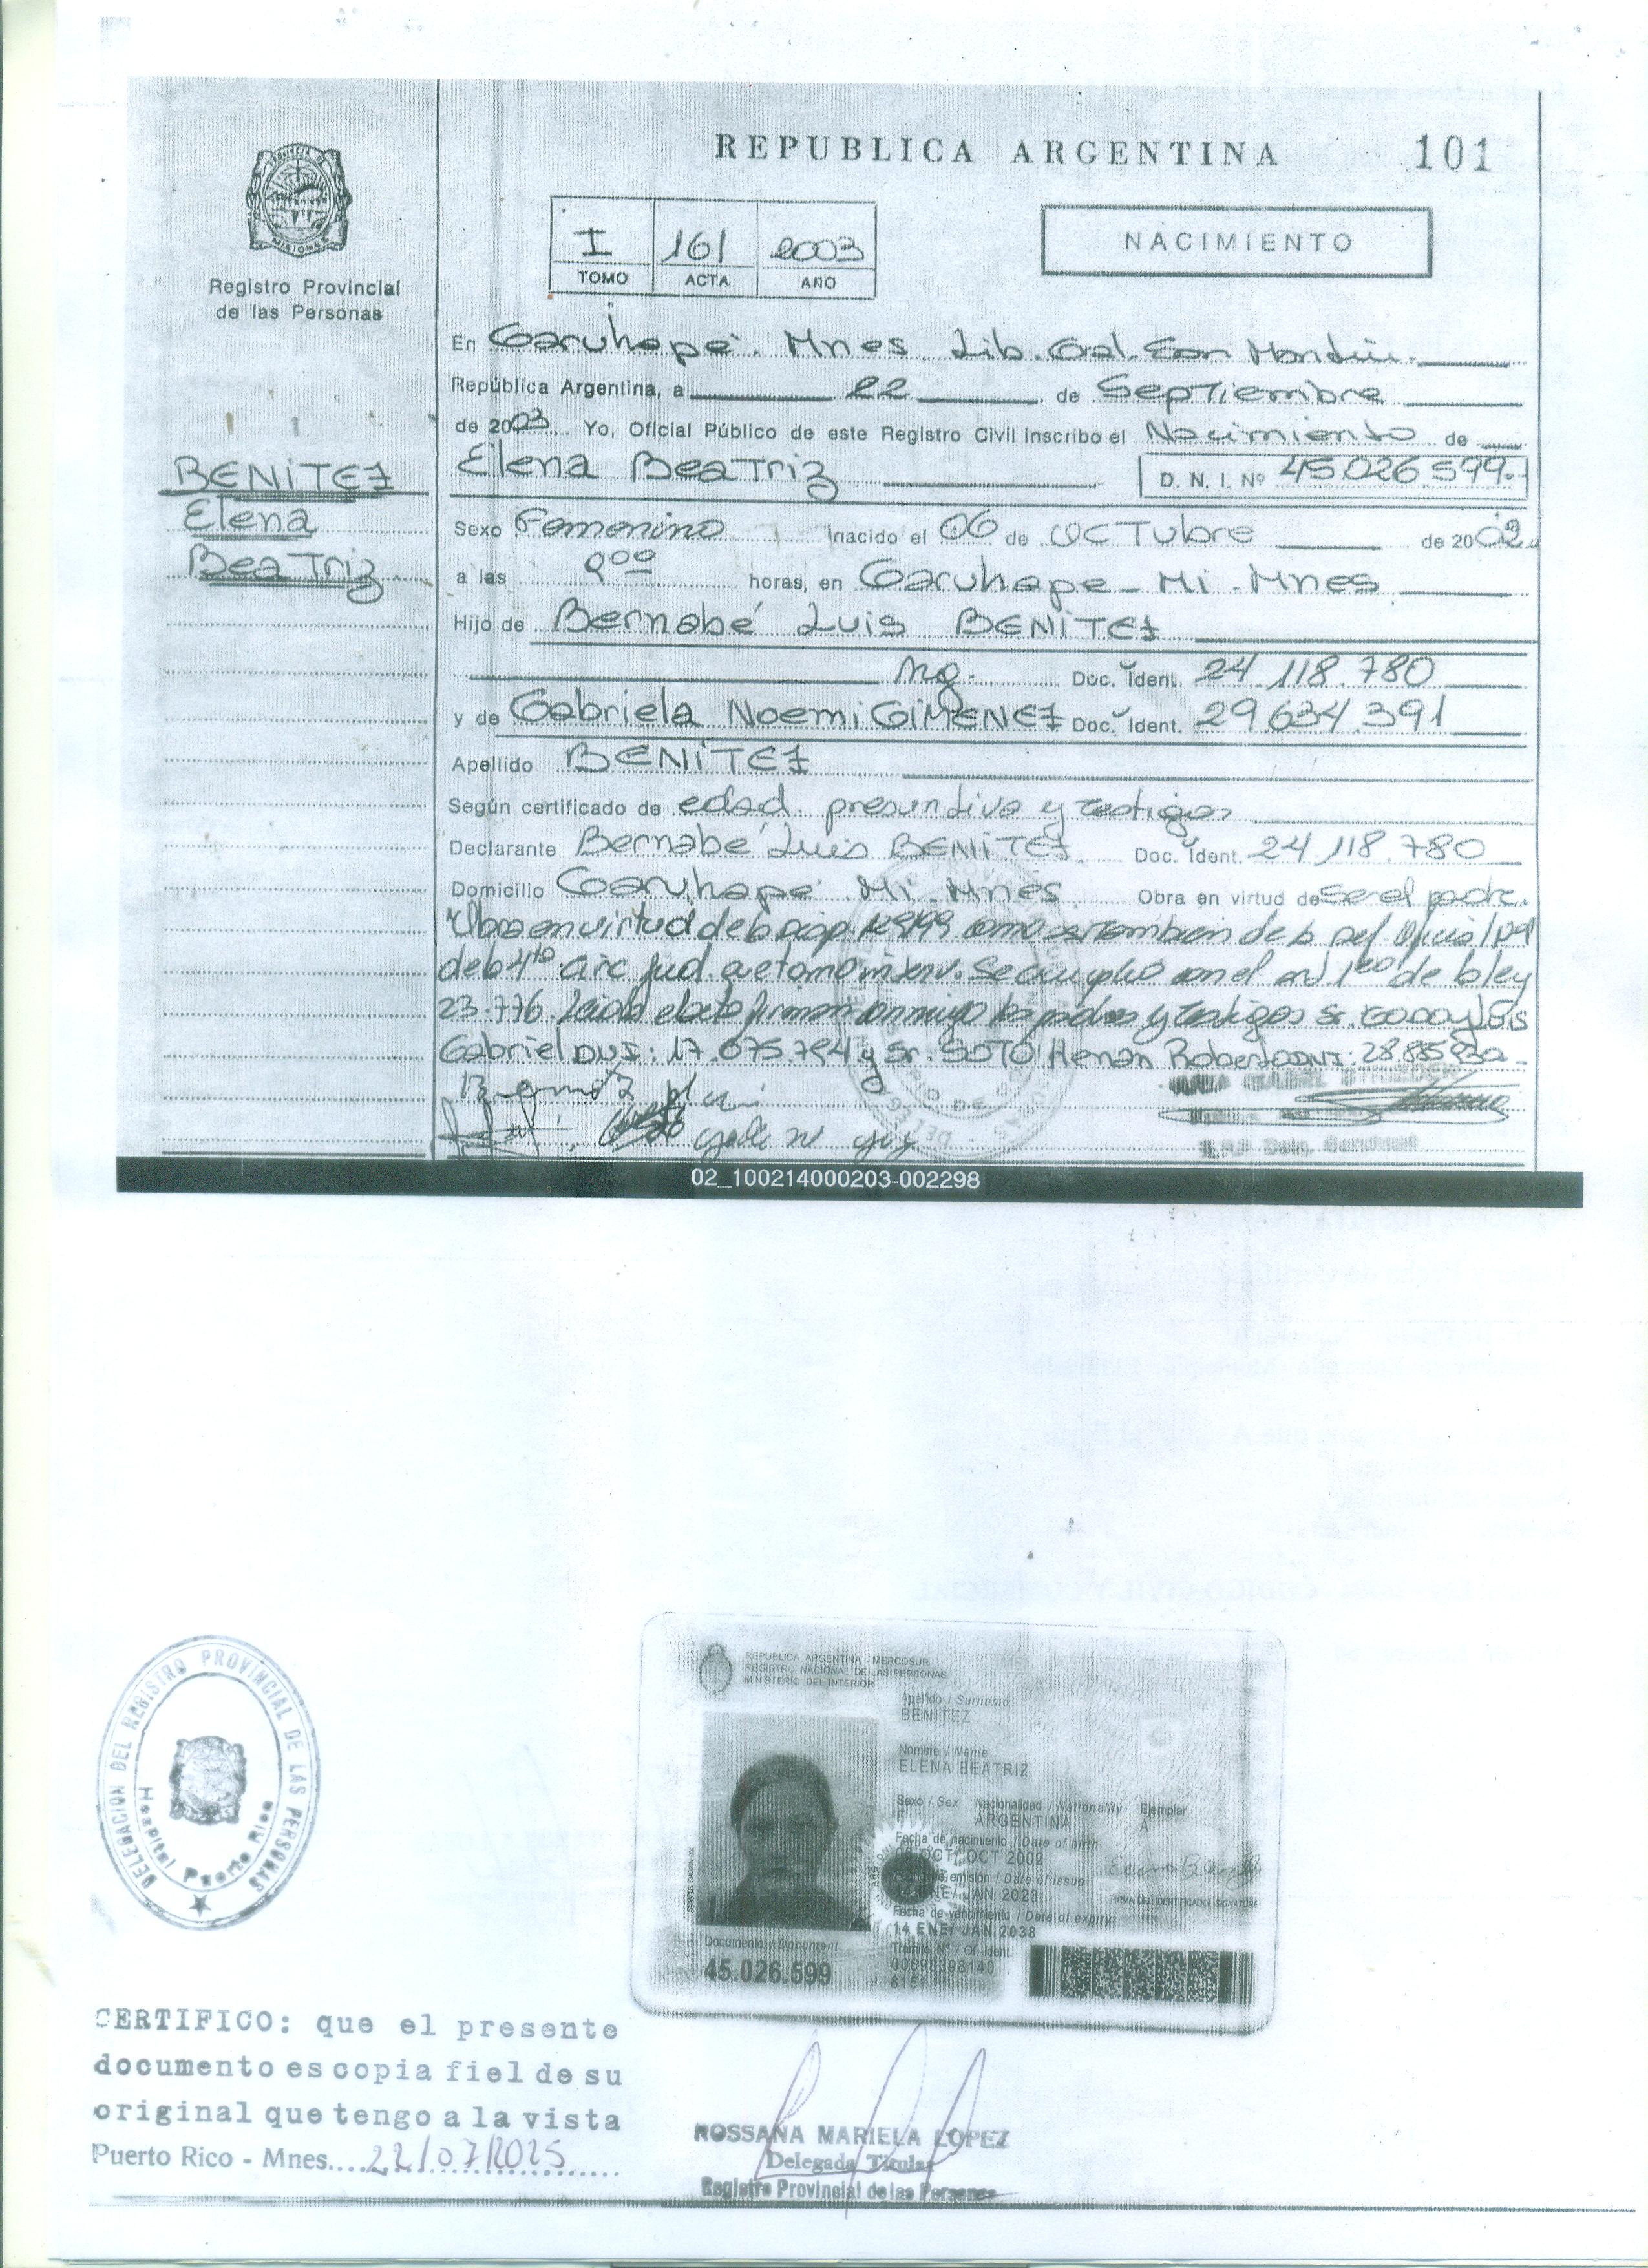 REPUBLICA ARGENTINA 101
PROVINCIA DE
MISIONES
Registro Provincial
de las Personas
I 161 2003
TOMO ACTA AÑO
NACIMIENTO
En Garuhapé. Mnes Lib. Gral. San Martín.
República Argentina, a 22 de Septiembre
de 2003 Yo, Oficial Público de este Registro Civil inscribo el Nacimiento de
Elena Beatriz D. N. I. Nº 45.026.599.-
BENITEZ
Elena
Beatriz
Sexo Femenino nacido el 06 de Octubre de 2002
a las 9⁰⁰ horas, en Garuhape - Mi - Mnes
Hijo de Bernabé Luis BENITEZ
Doc. Ident. 24.118.780
y de Gabriela Noemi GIMENEZ Doc. Ident. 29.634.391
Apellido BENITEZ
Según certificado de edad presuntiva y testigos
Declarante Bernabé Luis BENITEZ Doc. Ident. 24.118.780
Domicilio Garuhapé Mi. Mnes Obra en virtud de ser el padre.
Obra en virtud de la Disp. 129/99 como así también de la Def. Oficial
de la 4ta circ. Jud. que tomo interv. Se cumplio con el art. 1ro de la ley
23.776. Leida el acta firman conmigo los padres y testigos Sr. GODOY Luis
Gabriel DNI: 17.075.794 y Sr. SOTO Hernán Roberto DNI: 28.885.930.-
02_100214000203-002298
DELEGACION DEL REGISTRO PROVINCIAL DE LAS PERSONAS
Hospital Puerto Rico
REPUBLICA ARGENTINA - MERCOSUR
REGISTRO NACIONAL DE LAS PERSONAS
MINISTERIO DEL INTERIOR
Apellido / Surname
BENITEZ
Nombre / Name
ELENA BEATRIZ
Sexo / Sex Nacionalidad / Nationality Ejemplar
F ARGENTINA A
Fecha de nacimiento / Date of birth
OCT/ OCT 2002
emisión / Date of issue
14 ENE/ JAN 2023
Fecha de vencimiento / Date of expiry
14 ENE/ JAN 2038
FIRMA DEL IDENTIFICADO/ SIGNATURE
Documento / Document
45.026.599
Trámite Nº / Of. Ident.
00698398140
8151
CERTIFICO: que el presente
documento es copia fiel de su
original que tengo a la vista
Puerto Rico - Mnes.... 22/07/2025
ROSSANA MARIELA LOPEZ
Delegada Titular
Registro Provincial de las Personas